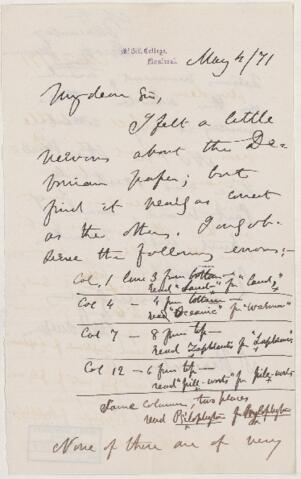 McGill College,
Montreal.
May 4/71
My dear Sir,
I felt a little
nervous about the De-
vonian paper; but
find it nearly as correct
as the others. I only ob-
serve the following errors:-
Col. 1 line 3 from bottom -
read "Land" for "Lands"
Col 4 - 4 from bottom -
read "Oceanic" for
Col 7 - 8 from top -
read Zaphrentis for
Col 12 - 6 from top -
read "pill-worts" for pile-worts
Same column, two places
read Psilophyton for
None of these are of very